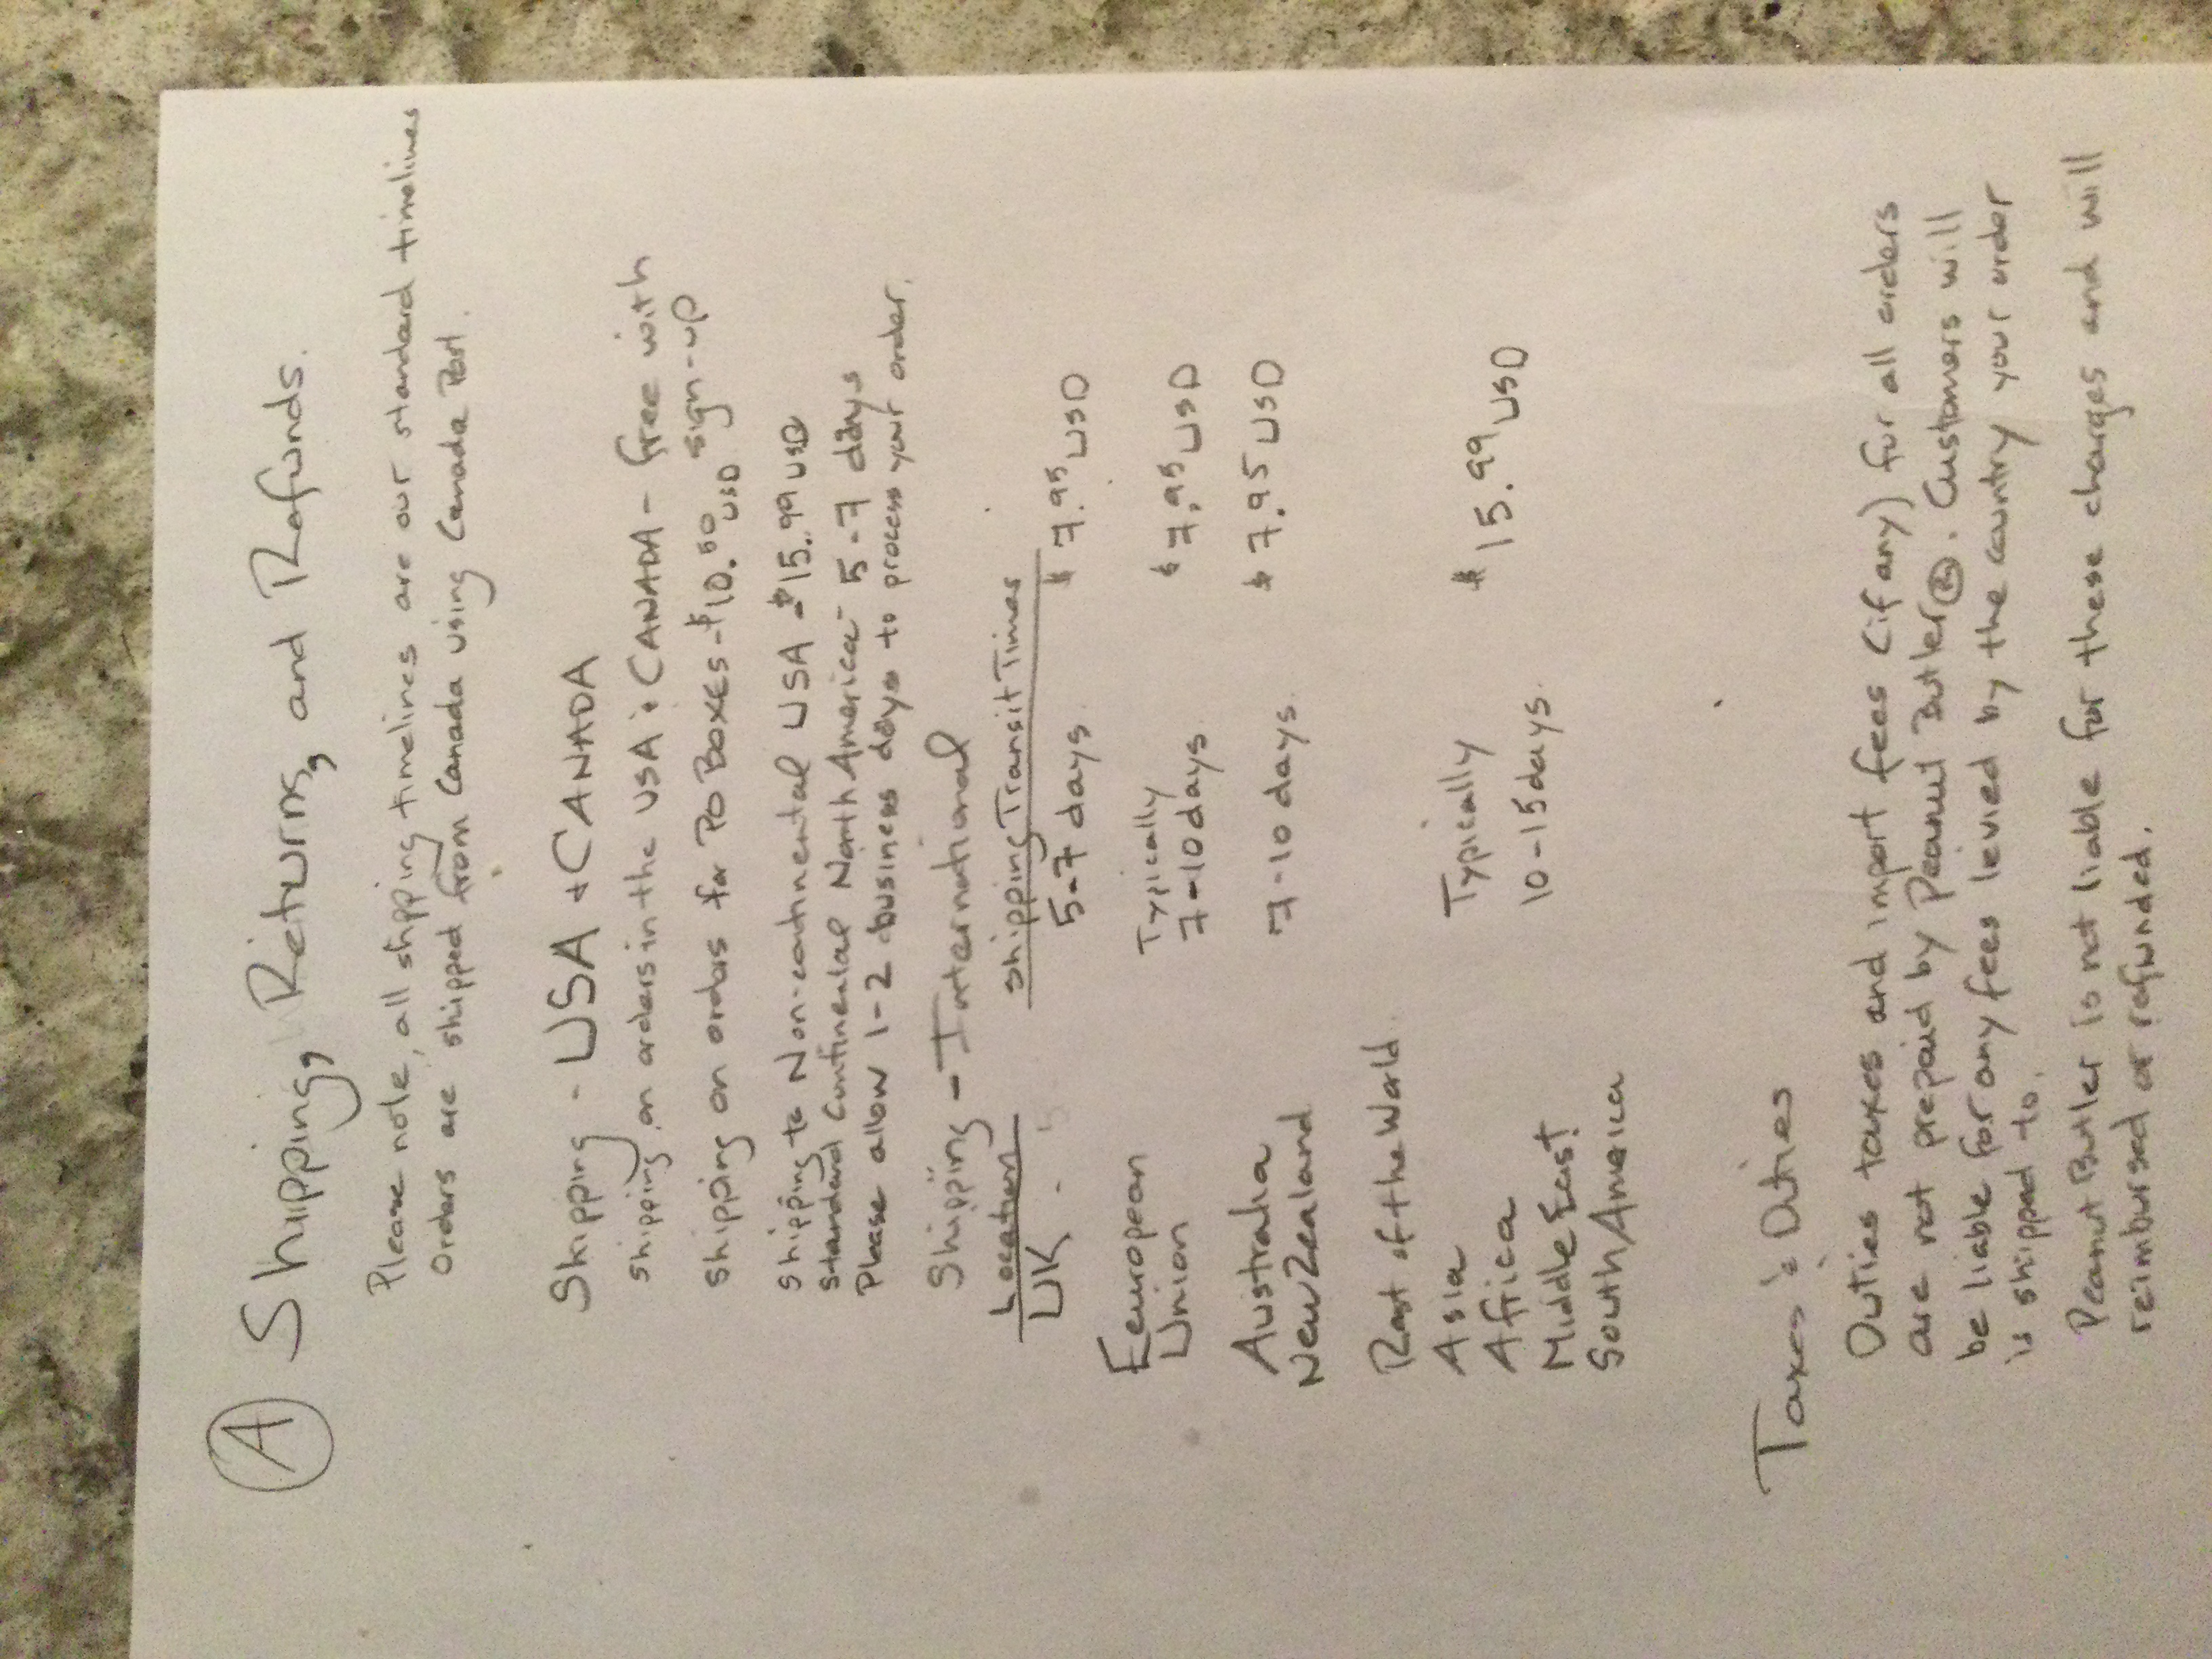 A Shipping, Returns, and Refunds.
Please note, all shipping timelines are our standard timelines
Orders are shipped from Canada using Canada Post.
Shipping - USA + CANADA
shipping on orders in the USA & CANADA - free with
sign-up
shipping on orders for PO Boxes - $10.50 USD
shipping to Non-continental USA - $15.99 USD
standard Continental North America - 5-7 days
Please allow 1-2 business days to process your order.
Shipping - International
Location Shipping Transit Times
UK. 5-7 days $7.95 USD
European Typically
Union 7-10 days $7.95 USD
Australia 7-10 days. $7.95 USD
New Zealand
Rest of the World.
Asia Typically $15.99 USD
Africa 10-15 days.
Middle East
South America
Taxes & Duties
Duties taxes and import fees (if any) for all orders
are not prepaid by Peanut Butler®. Customers will
be liable for any fees levied by the country your order
is shipped to.
Peanut Butler is not liable for these charges and will
reimbursed or refunded.